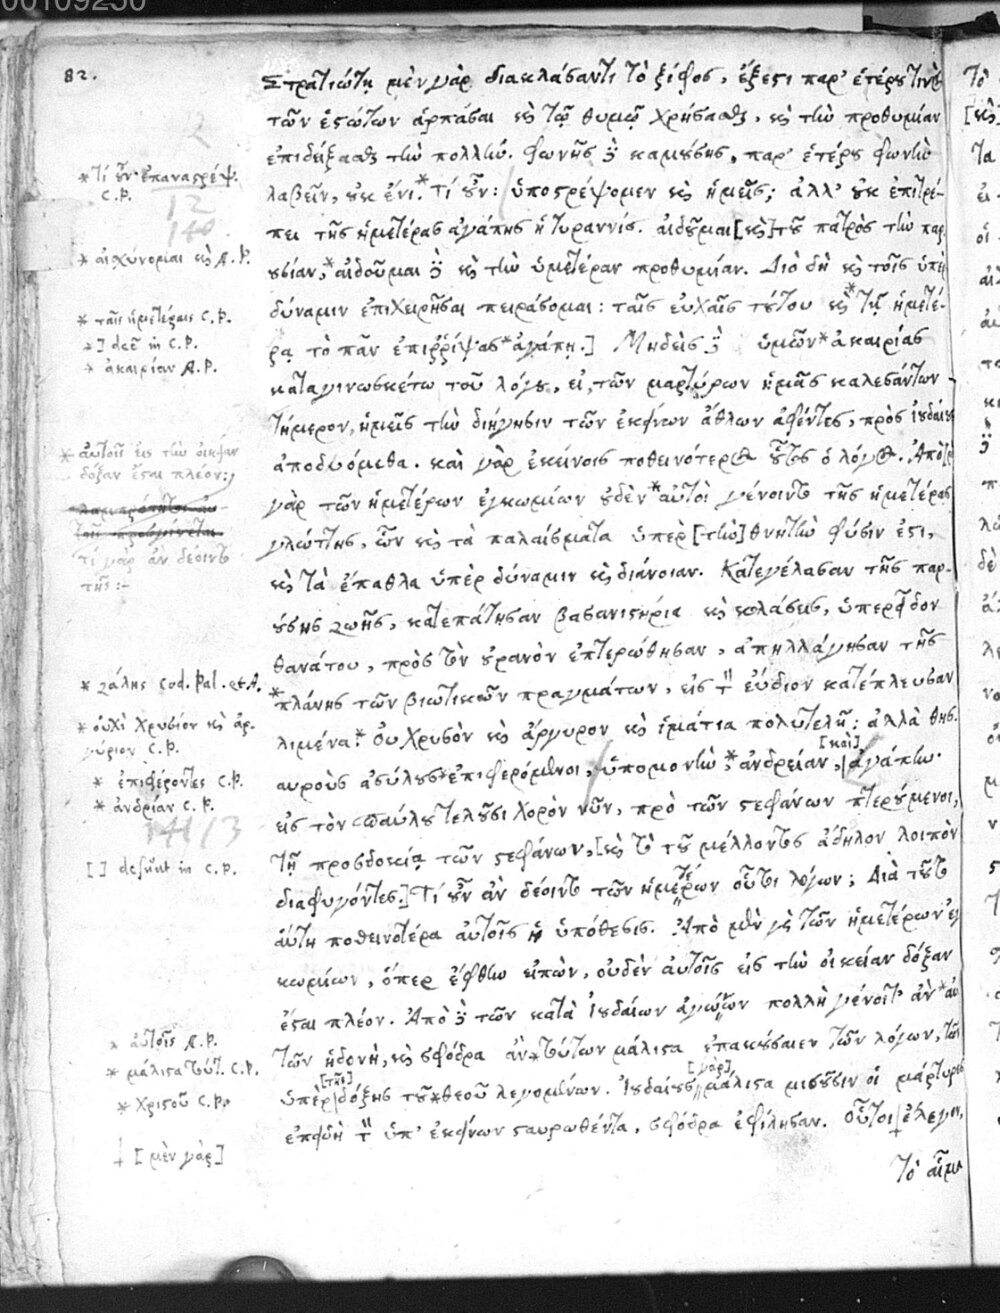 00109250
82.
Στρατιώτῃ μὲν γὰρ διακλάσαντι τὸ ξίφος, ἔξεστι παρ' ἑτέρου τινὸς
τῶν ἑστώτων ἁρπάσαι κỳ τῷ θυμῷ χρήσασθαι, κỳ τὴν προθυμίαν
ἐπιδείξασθαι τὴν πολλήν. φωνῆς δὲ καμούσης, παρ' ἑτέρου φωνὴν
λαβεῖν, οὐκ ἔνι.* τί οὖν; ὑποστρέψομεν κỳ ἡμεῖς; ἀλλ' οὐκ ἐπιτρέ-
πει τῆς ἡμετέρας ἀγάπης ἡ τυραννίς. αἰδοῦμαι [κỳ] τοῦ πατρὸς τὴν παρ
ουσίαν,* αἰδοῦμαι δὲ κỳ τὴν ὑμετέραν προθυμίαν. Διὸ δὴ κỳ τοῖς ὑπὲρ
δύναμιν ἐπιχειρῆσαι πειράσομαι: ταῖς εὐχαῖς τούτου κỳ* τῇ ἡμετέ-
ρᾳ τὸ πᾶν ἐπιρρίψας* ἀγάπῃ.] Μηδεὶς δὲ ὑμῶν* ἀκαιρίας
καταγινωσκέτω τοῦ λόγου, εἰ, τῶν μαρτύρων ἡμᾶς καλεσάντων
τήμερον, ἡμεῖς τὴν διήγησιν τῶν ἐκείνων ἄθλων ἀφέντες, πρὸς ἰουδαίους
ἀποδυόμεθα. καὶ γὰρ ἐκείνοις ποθεινότερος οὗτος ὁ λόγος. Ἀπὸ
γὰρ τῶν ἡμετέρων ἐγκωμίων οὐδὲν* αὐτοὶ γένοιντο τῆς ἡμετέρας
γλώττης, ὧν κỳ τὰ παλαίσματα ὑπὲρ [τὴν] θνητὴν φύσιν ἐστι,
κỳ τὰ ἔπαθλα ὑπὲρ δύναμιν κỳ διάνοιαν. Κατεγέλασαν τῆς παρ-
ούσης ζωῆς, κατεπάτησαν βασανιστήρια κỳ κολάσεις, ὑπερεῖδον
θανάτου, πρὸς τὸν οὐρανὸν ἐπτερώθησαν, ἀπηλλάγησαν τῆς
*πλάνης τῶν βιωτικῶν πραγμάτων, εἰς τὸν εὔδιον κατέπλευσαν
λιμένα.* Οὐ χρυσὸν κỳ ἄργυρον κỳ ἱμάτια πολυτελῆ; ἀλλὰ θησ.
[καὶ]
αυροὺς ἀσύλους* ἐπιφερόμενοι, ὑπομονὴν,* ἀνδρείαν, ἀγάπην.
εἰς τὸν παύλου τελοῦσι χορὸν νῦν, πρὸ τῶν στεφάνων πτερούμενοι,
τῇ προσδοκίᾳ τῶν στεφάνων, [κỳ τὸ τοῦ μέλλοντος ἄδηλον λοιπὸν
διαφυγόντες.] Τί οὖν ἂν δέοιντο τῶν ἡμετέρων οὗτοι λόγων; Διὰ τοῦτο
αὕτη ποθεινοτέρα αὐτοῖς ἡ ὑπόθεσις. Ἀπὸ μὲν γὰρ τῶν ἡμετέρων ἐγ
κωμίων, ὅπερ ἔφθην εἰπὼν, οὐδὲν αὐτοῖς εἰς τὴν οἰκείαν δόξαν
ἔσται πλέον. Ἀπὸ δὲ τῶν κατὰ ἰουδαίων ἀγώνων πολλὴ γένοιτ' ἂν* αὐ
τῶν ἡδονὴ, κỳ σφόδρα ἂν* τούτων μάλιστα ἐπακούσαιεν τῶν λόγων, τῶν
[τῆς] [γὰρ]
ὑπὲρ δόξης τοῦ* θεοῦ λεγομένων. Ἰουδαίους μάλιστα μισοῦσιν οἱ μάρτυρες
ἐπειδὴ τὸν ὑπ' ἐκείνων σταυρωθέντα, σφόδρα ἐφίλησαν. Οὗτοι ἔλεγον,
Τὸ αἷμα
*τί οὖν ἐπαναστρέψ.
C.P.
* αἰσχύνομαι κỳ A.P.
* ταῖς ἡμετέραις C.P.
*] deē in C.P.
* ἀκαιρίαν A.P.
* αὐτοῖς εἰς τὴν οἰκείαν
δόξαν ἔσται πλέον:
τί γὰρ ἂν δέοιντο
τῆς:-
* ζάλης Cod. Pal. et A.
* οὐχὶ χρυσίον κỳ ἀρ.
γύριον C.P.
* ἐπιφέροντες C.P.
* ἀνδρίαν C.P.
141/3
[ ] desunt in C.P.
* αὐτοῖς A.P.
* μάλιστα τούτ. C.P.
* Χριστοῦ C.P.
[μὲν γὰρ]